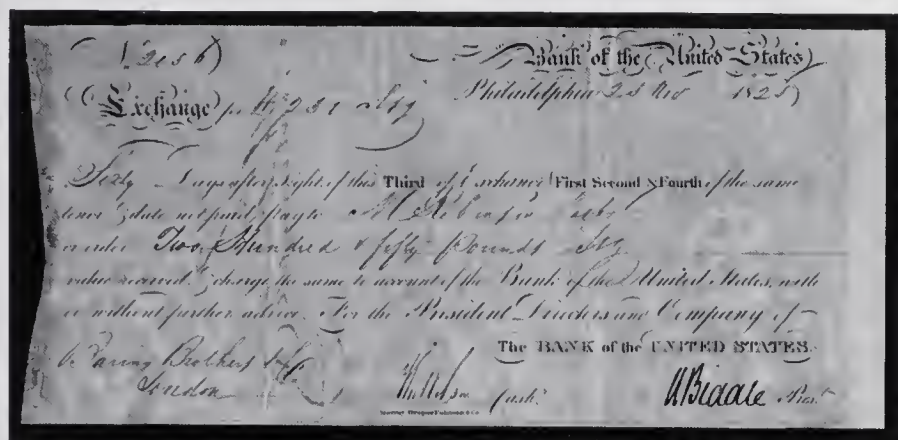 Bank of the United States
Exchange for £250 Stg
Philadelphia 1825
Sixty Days after Sight of this Third of Exchange (First Second & Fourth of the same
tenor & date not paid) pay to
or order Two Hundred & fifty Pounds Stg
value received & charge the same to account of the Bank of the United States, with
or without further advice. For the President Directors and Company of
The BANK of the UNITED STATES.
Baring Brothers & Co
London
Cashr
N Biddle Prest